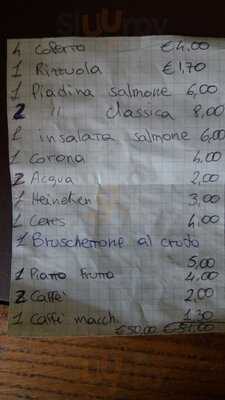 4 Coperto €4,00
1 Rizzuola €1,70
1 Piadina salmone 6,00
2 " classica 8,00
1 insalata salmone 6,00
1 Corona 4,00
2 Acqua 2,00
1 Heineken 3,00
1 Ceres 4,00
1 Bruschettone al crudo
5,00
1 Piatto frutta 4,00
2 Caffè 2,00
1 Caffè macch. 1,30
€50,00 €51,00